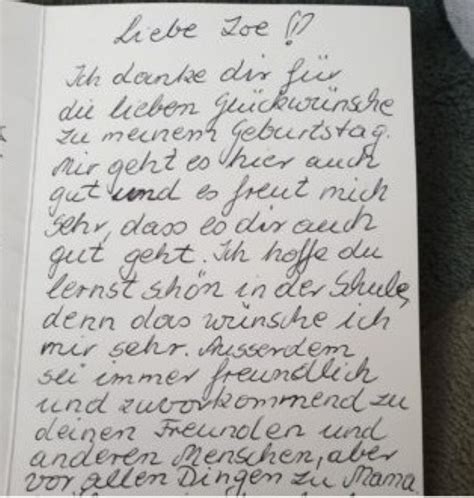 Liebe Zoe !!
Ich danke dir für
die lieben Glückwünsche
zu meinem Geburtstag.
Mir geht es hier auch
gut und es freut mich
sehr, dass es dir auch
gut geht. Ich hoffe du
lernst schön in der Schule,
denn das wünsche ich
mir sehr. Ausserdem
sei immer freundlich
und zuvorkommend zu
deinen Freunden und
anderen Menschen, aber
vor allen Dingen zu Mama